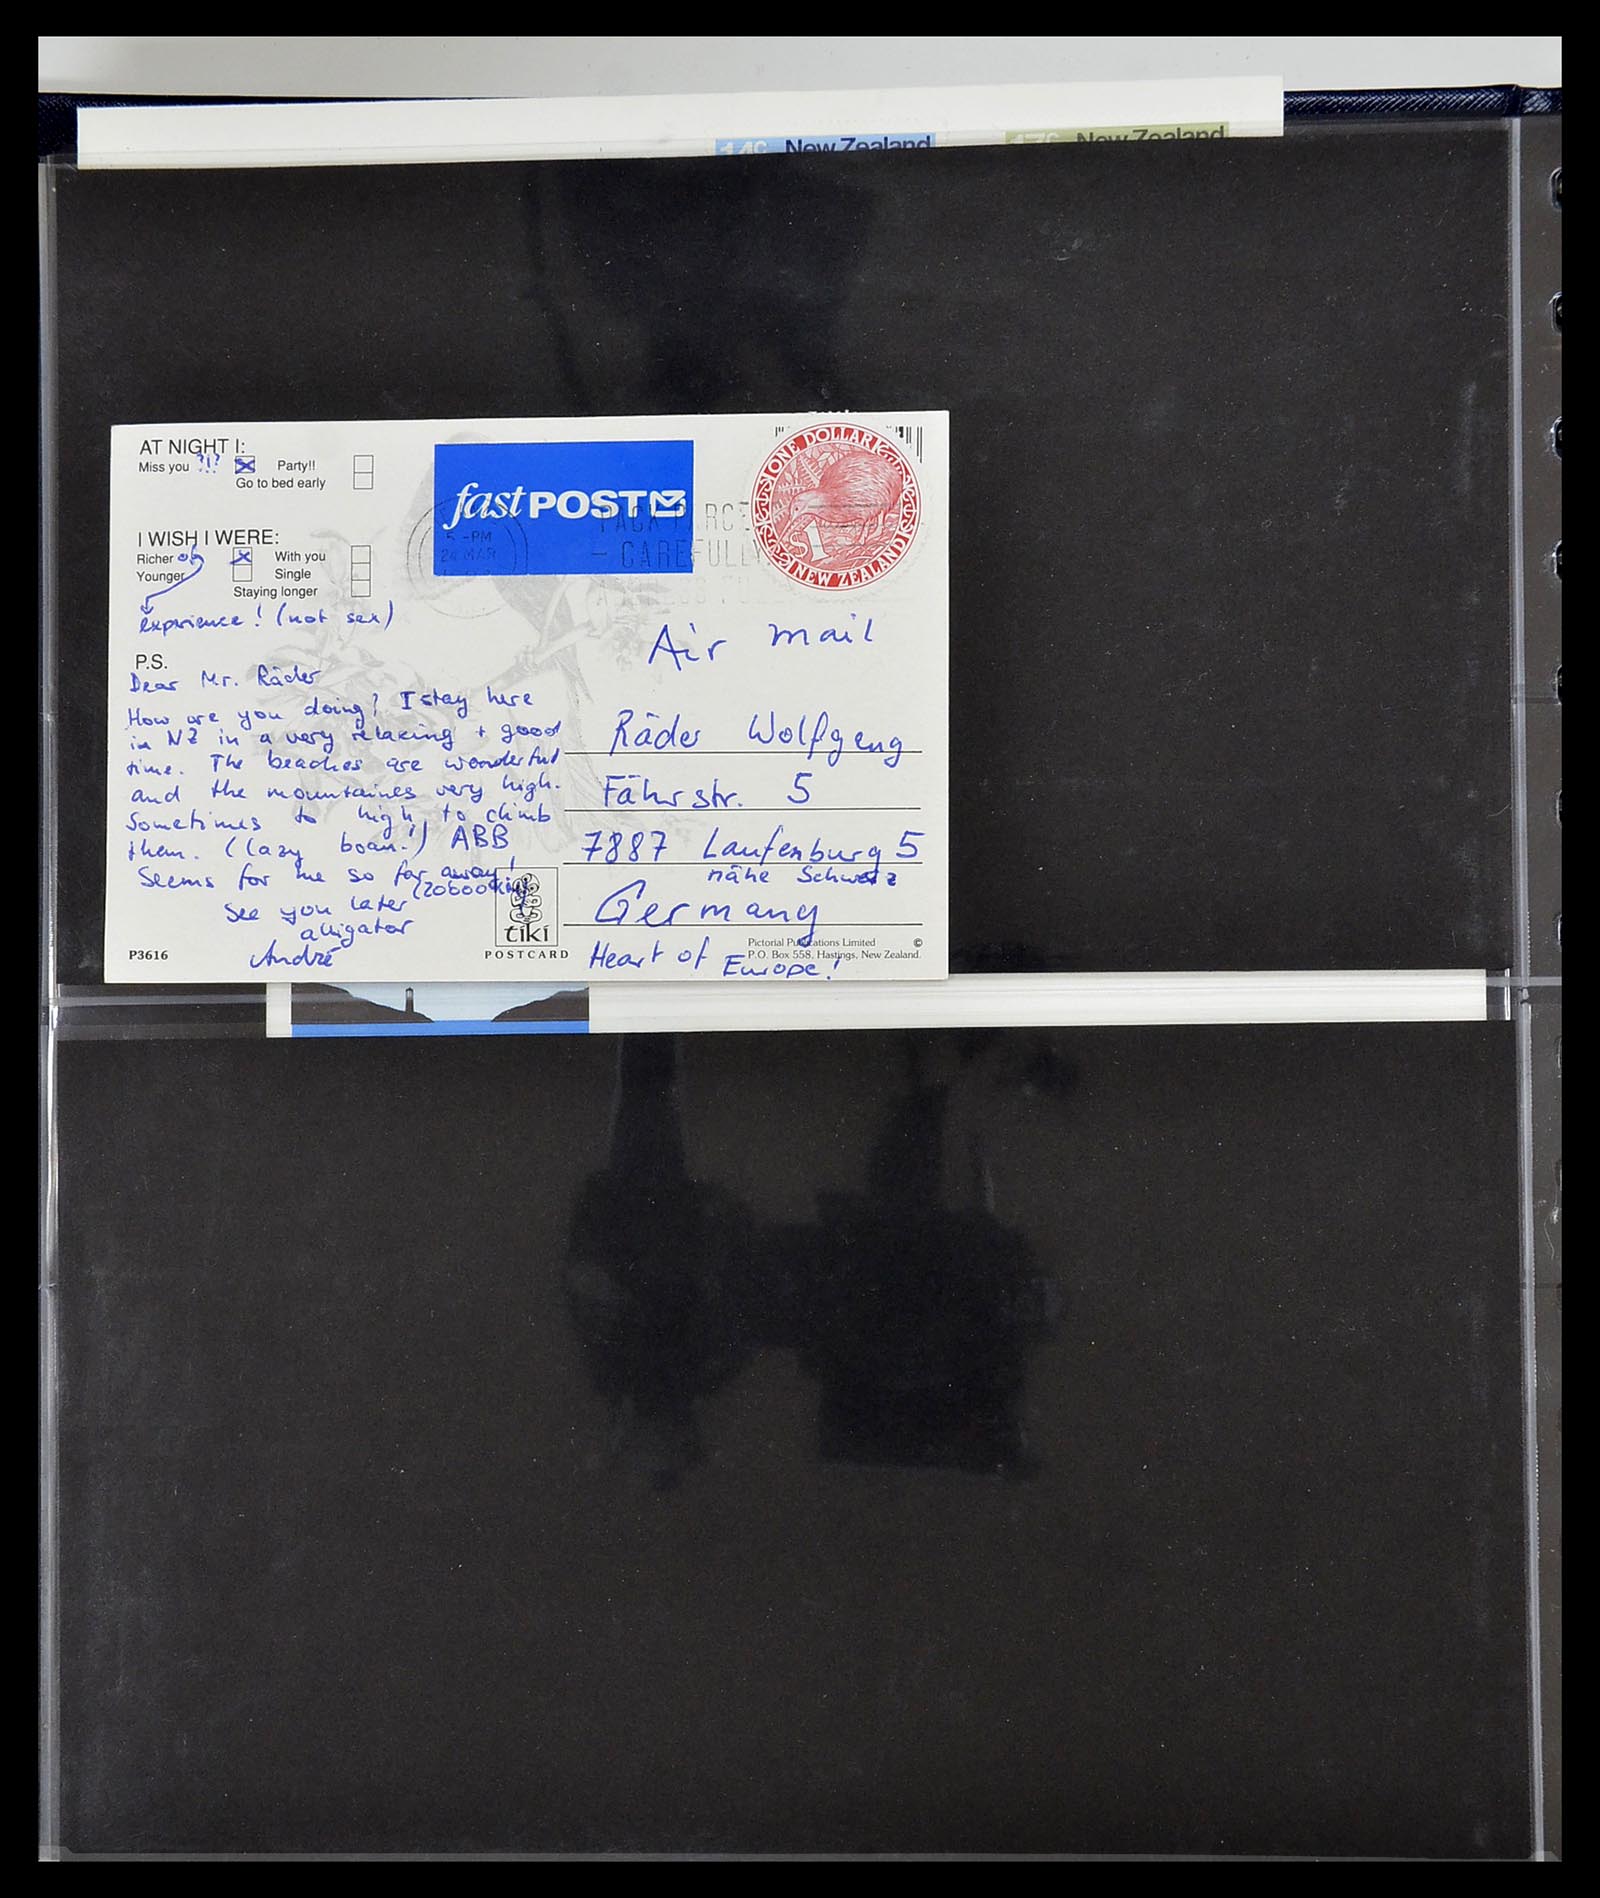 14c New Zealand
17c New Zealand
AT NIGHT I:
Miss you ?!?
Party!!
Go to bed early
I WISH I WERE:
Richer of
With you
Younger
Single
Staying longer
experience! (not sex)
fastPOST
5 -PM
24 MAR
PACK PARCE
– CAREFULLY
ONE DOLLAR
$1
NEW ZEALAND
Air mail
P.S.
Dear Mr. Räder
How are you doing? I stay here
in NZ in a very relaxing + good
time. The beaches are wonderful
and the mountaines very high.
Sometimes to high to climb
them. (lazy boan!) ABB
Seems for me so far away!
(20600km)
See you later
alligator
André
Räder Wolfgang
Fährstr. 5
7887 Laufenburg 5
nähe Schweiz
Germany
Heart of Europe!
P3616
tiki
POSTCARD
Pictorial Publications Limited ©
P.O. Box 558, Hastings, New Zealand.